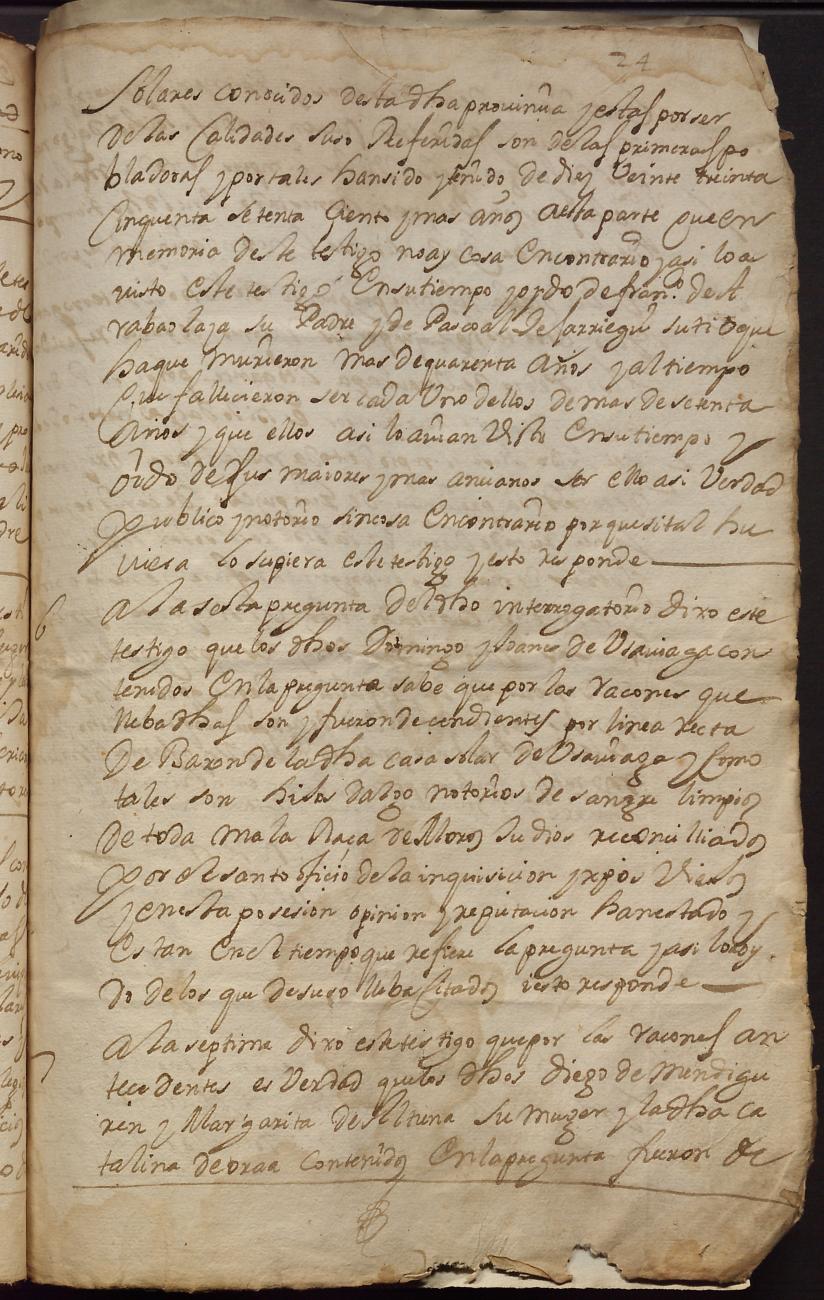 24
Solares conocidos desta dha provinçia y estas por ser
de las Calidades suso Referidas son de las primeras po
bladoras y por tales han sido tenido de diez Veinte treinta
Cinquenta setenta Ciento y mas años a esta parte que en
memoria deste testigo no ay cosa En contrario y asi lo a
visto este testigo En su tiempo y oydo de franco. de A
rabaolaza su Padre y de Pascoal de sarriegui su tio que
ha que murieron mas de quarenta años y al tiempo
que fallecieron ser cada Uno dellos de mas de setenta
años y que ellos asi lo avian Visto En su tiempo y
oydo de sus maiores y mas ancianos ser ello asi Verdad
publico y notorio sin cosa En contrario por que si tal hu
viera lo supiera este testigo y esto responde
6
A la sesta pregunta del dho interrogatorio dixo este
testigo que los dhos Domingo y Joanes de Usaviaga con
tenidos En la pregunta sabe que por las racones que
lleba dhas son y fueron decendientes por linea recta
De Baron de la dha casa solar de Usaviaga y Como
tales son hijos dalgo notorios de sangre limpios
de toda mala Raça de Moros Judios reconcilliados
por el santo oficio de la inquisicion xpos Viejos
y en esta posesion opinion y reputacion han estado y
estan En el tiempo que refiere la pregunta y asi lo a oy
do de los que de suso lleba Citados y esto responde
7
A la septima dixo este testigo que por las racones an
tecedentes es Verdad que los dhos diego de mendigu
ren y Margarita de Altuna su muger y la dha ca
talina de oraa Contenidos En la pregunta fueron de